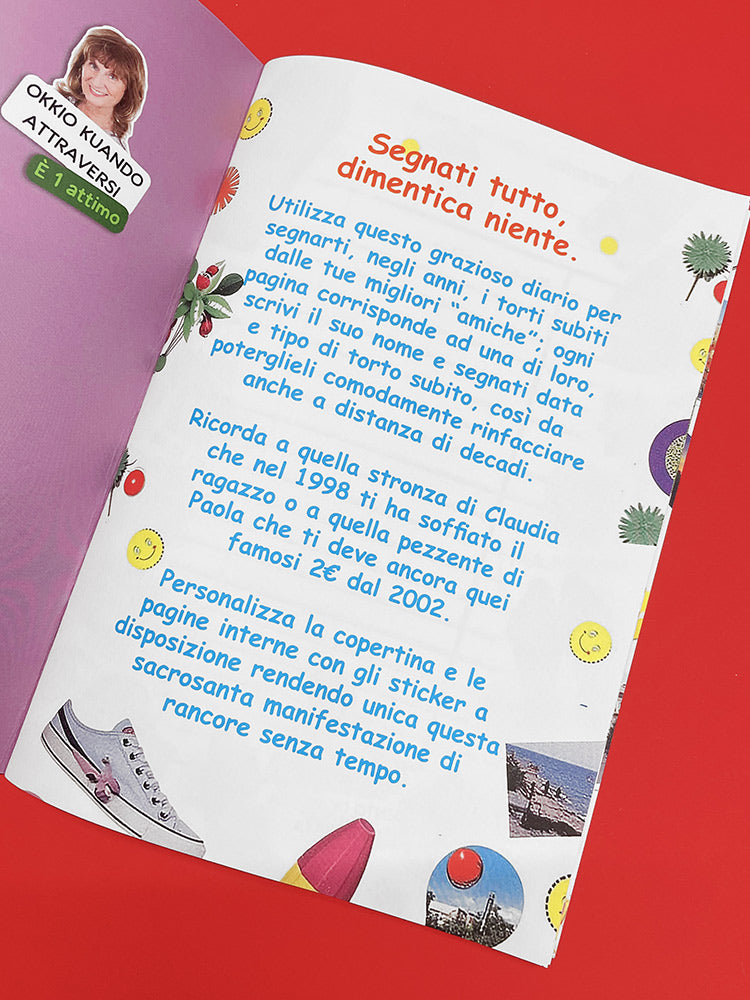 OKKIO KUANDO
ATTRAVERSI
È 1 attimo
Segnati tutto,
dimentica niente.
Utilizza questo grazioso diario per
segnarti, negli anni, i torti subiti
dalle tue migliori “amiche”; ogni
pagina corrisponde ad una di loro,
scrivi il suo nome e segnati data
e tipo di torto subito, così da
poterglieli comodamente rinfacciare
anche a distanza di decadi.
Ricorda a quella stronza di Claudia
che nel 1998 ti ha soffiato il
ragazzo o a quella pezzente di
Paola che ti deve ancora quei
famosi 2€ dal 2002.
Personalizza la copertina e le
pagine interne con gli sticker a
disposizione rendendo unica questa
sacrosanta manifestazione di
rancore senza tempo.